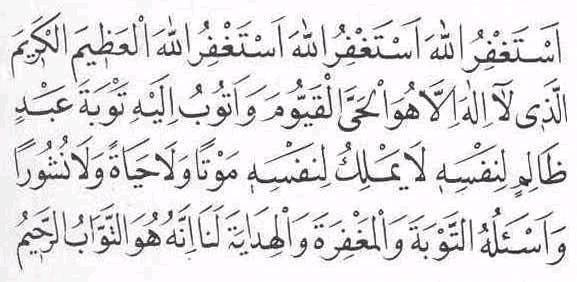 اَسْتَغْفِرُ اللّٰهَ اَسْتَغْفِرُ اللّٰهَ اَسْتَغْفِرُ اللّٰهَ الْعَظ۪يمَ الْكَر۪يمَ
الَّذ۪ى لَآ اِلٰهَ اِلَّا هُوَ الْحَىَّ الْقَيُّومَ وَاَتُوبُ اِلَيْهِ تَوْبَةَ عَبْدٍ
ظَالِمٍ لِنَفْسِه۪ لَا يَمْلِكُ لِنَفْسِه۪ مَوْتًا وَلَا حَيَاةً وَلَا نُشُورًا
وَاَسْئَلُهُ التَّوْبَةَ وَالْمَغْفِرَةَ وَالْهِدَايَةَ لَنَا اِنَّهُ هُوَ التَّوَّابُ الرَّح۪يمُ